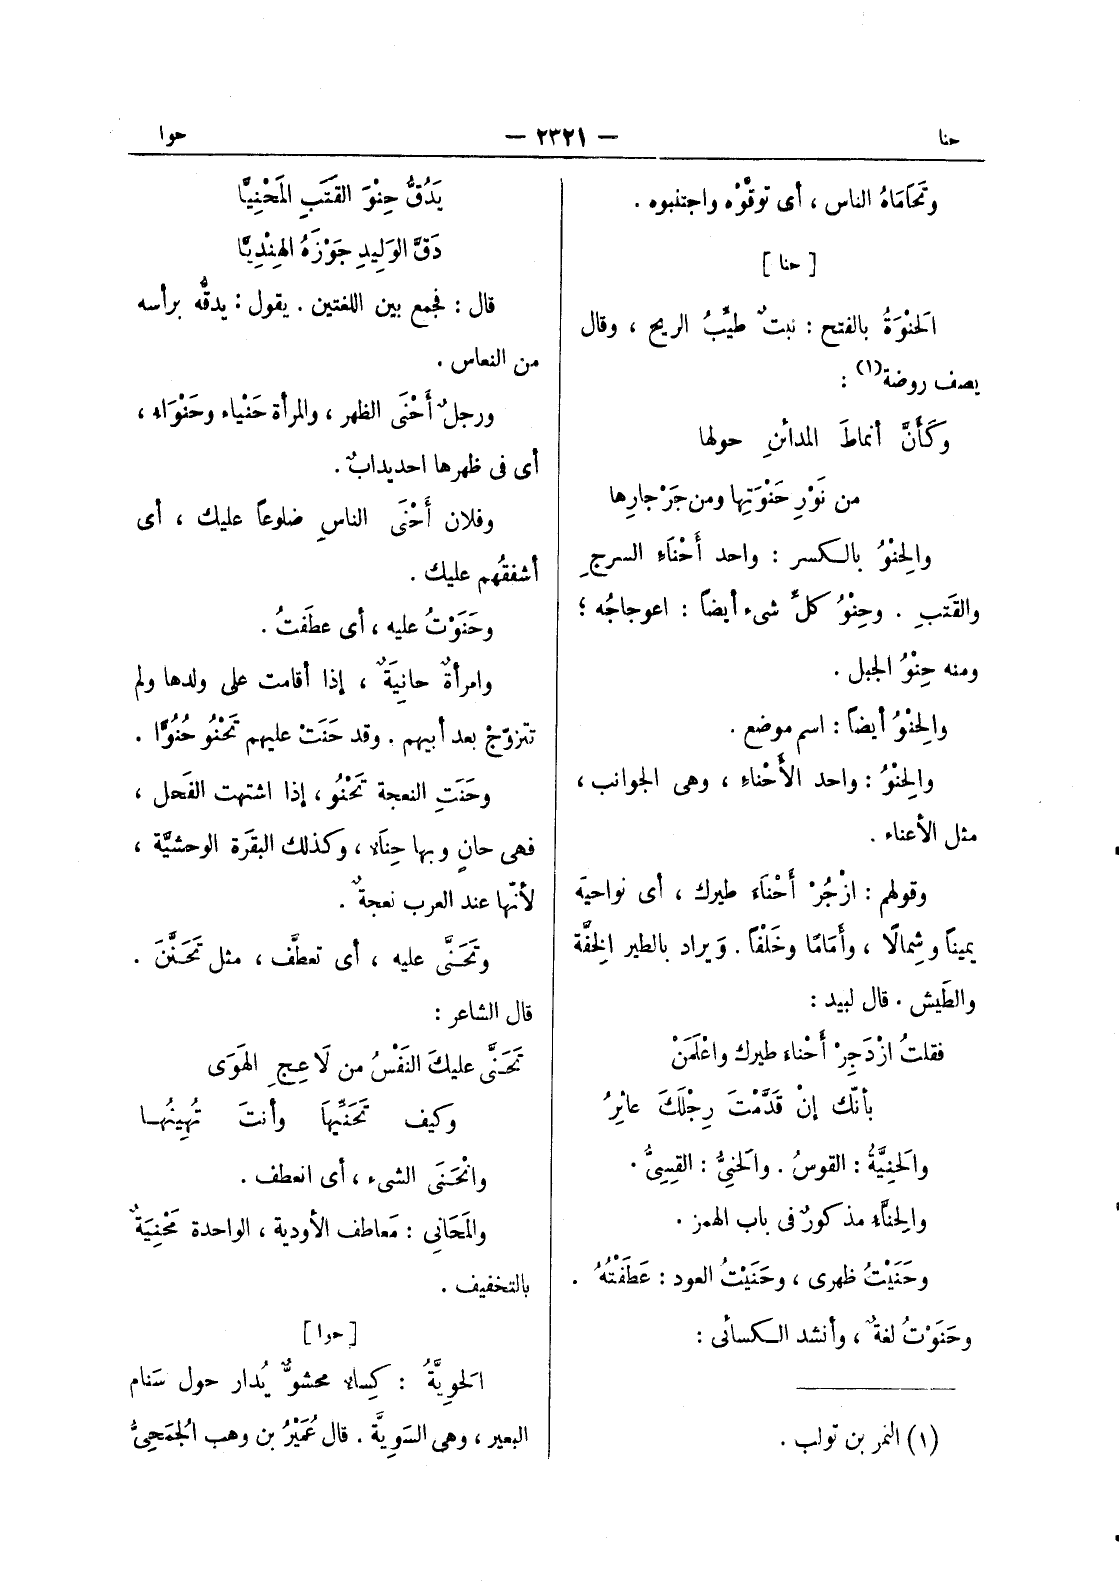 حنا
— ٢٣٢١ —
حوا
وتَحَامَاهُ الناس ، أى توقَّوْه واجتنبوه .
[ حنا ]
الحَنْوَةُ بالفتح : نبتٌ طيِّبُ الريح ، وقال
يصف روضة(١) :
وكَأَنَّ أنماطَ المدائنِ حولها
من نَوْرِ حَنْوَتِها ومن جَرْجارِها
والحِنْوُ بالكسر : واحد أَحْنَاءِ السرجِ
والقَتبِ . وحِنْوُ كلِّ شىء أيضاً : اعوجاجُه ؛
ومنه حِنْوُ الجبل .
والحِنْوُ أيضاً : اسم موضع .
والحِنْوُ : واحد الأَحْناءِ ، وهى الجوانب ،
مثل الأعناء .
وقولهم : ازْجُرْ أَحْنَاءَ طيرك ، أى نواحيَه
يميناً وشِمالًا ، وأَمَامًا وخَلْفاً . وَيراد بالطير الخِفَّة
والطَيش . قال لبيد :
فقلتُ ازْدَجِرْ أَحْناءَ طيرك واعْلَمَنْ
بأنّك إنْ قَدَّمْتَ رِجْلَكَ عاثِرُ
والحَنِيَّةُ : القوسُ . والحَنِيُّ : القِسِيُّ .
والحِنَّاء مذكورٌ فى باب الهمز .
وحَنَيْتُ ظهرى ، وحَنَيْتُ العود : عَطَفْتُهُ .
وحَنَوْتُ لغةٌ ، وأنشد الكسائى :
(١) النمر بن تولب .
يَدُقُّ حِنْوَ القَتَبِ المَحْنِيَّا
دَقَّ الوَلِيدِ جَوْزَهُ الهِنْدِيَّا
قال : فجمع بين اللغتين . يقول : يدقُّه برأسه
من النعاس .
ورجلٌ أَحْنَى الظهر ، والمرأة حَنْيَاء وحَنْوَاء ،
أى فى ظهرها احديدابٌ .
وفلان أَحْنَى الناسِ ضلوعاً عليك ، أى
أشفقُهم عليك .
وحَنَوْتُ عليه ، أى عطَفتُ .
وامرأةٌ حانِيَةٌ ، إذا أقامت على ولدها ولم
تتزوّجْ بعد أبيهم . وقد حَنَتْ عليهم تَحْنُو حُنُوًّا .
وحَنَتِ النعجة تَحْنُو ، إذا اشتهت الفَحل ،
فهى حانٍ وبها حِنَاء ، وكذلك البقرَة الوحشيَّة ،
لأنّها عند العرب نعجةٌ .
وتَحَنَّى عليه ، أى تعطَّف ، مثل تَحَنَّنَ .
قال الشاعر :
تَحَنَّى عليكَ النَفْسُ من لَاعِجِ الهَوَى
وكيف تَحَنِّيهَا وأنتَ تُهِينُها
وانْحَنَى الشىء ، أى انعطف .
والمَحَانِي : مَعاطف الأودية ، الواحدة مَحْنِيَةٌ
بالتخفيف .
[ حوا ]
الحَوِيَّةُ : كِساء محشوٌّ يُدار حول سَنام
البعير ، وهى السَوِيَّة . قال عُمَيْرُ بن وهب الجُمَحِيُّ